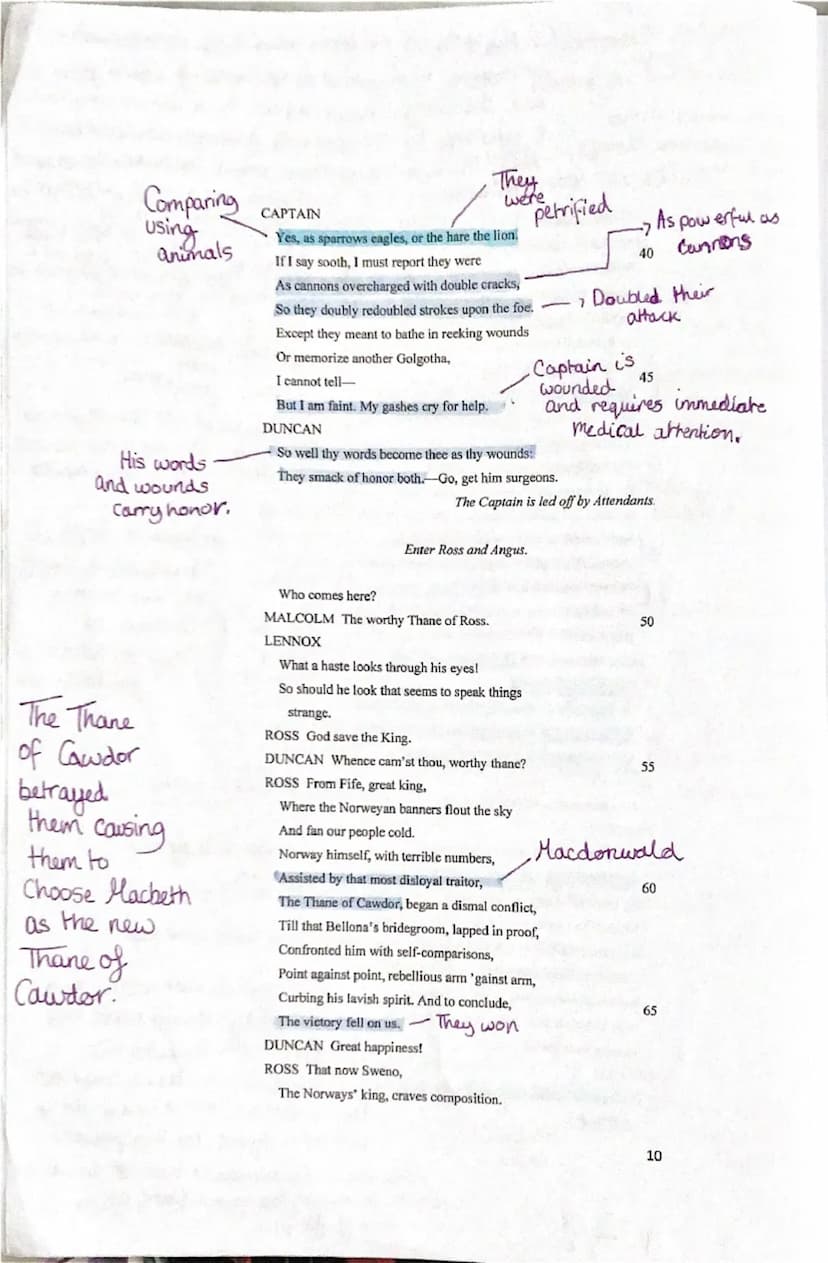 They
were
petrified
Comparing
using
animals
CAPTAIN
Yes, as sparrows eagles, or the hare the lion.
As powerful as
cannons
If I say sooth, I must report they were
40
As cannons overcharged with double cracks,
So they doubly redoubled strokes upon the foe.
Doubled their
attack
Except they meant to bathe in reeking wounds
Or memorize another Golgotha,
I cannot tell—
45
Captain is
wounded
and requires immediate
medical attention.
But I am faint. My gashes cry for help.
DUNCAN
So well thy words become thee as thy wounds:
They smack of honor both.—Go, get him surgeons.
His words
and wounds
carry honor.
The Captain is led off by Attendants.
Enter Ross and Angus.
Who comes here?
MALCOLM The worthy Thane of Ross.
50
LENNOX
What a haste looks through his eyes!
So should he look that seems to speak things
strange.
ROSS God save the King.
DUNCAN Whence cam'st thou, worthy thane?
55
ROSS From Fife, great king,
Where the Norweyan banners flout the sky
And fan our people cold.
Norway himself, with terrible numbers,
Macdonwald
Assisted by that most disloyal traitor,
60
The Thane of Cawdor, began a dismal conflict,
Till that Bellona's bridegroom, lapped in proof,
Confronted him with self-comparisons,
Point against point, rebellious arm 'gainst arm,
Curbing his lavish spirit. And to conclude,
65
The victory fell on us.
They won
The Thane
of Cawdor
betrayed
them causing
them to
choose Macbeth
as the new
Thane of
Cawdor.
DUNCAN Great happiness!
ROSS That now Sweno,
The Norways' king, craves composition.
10